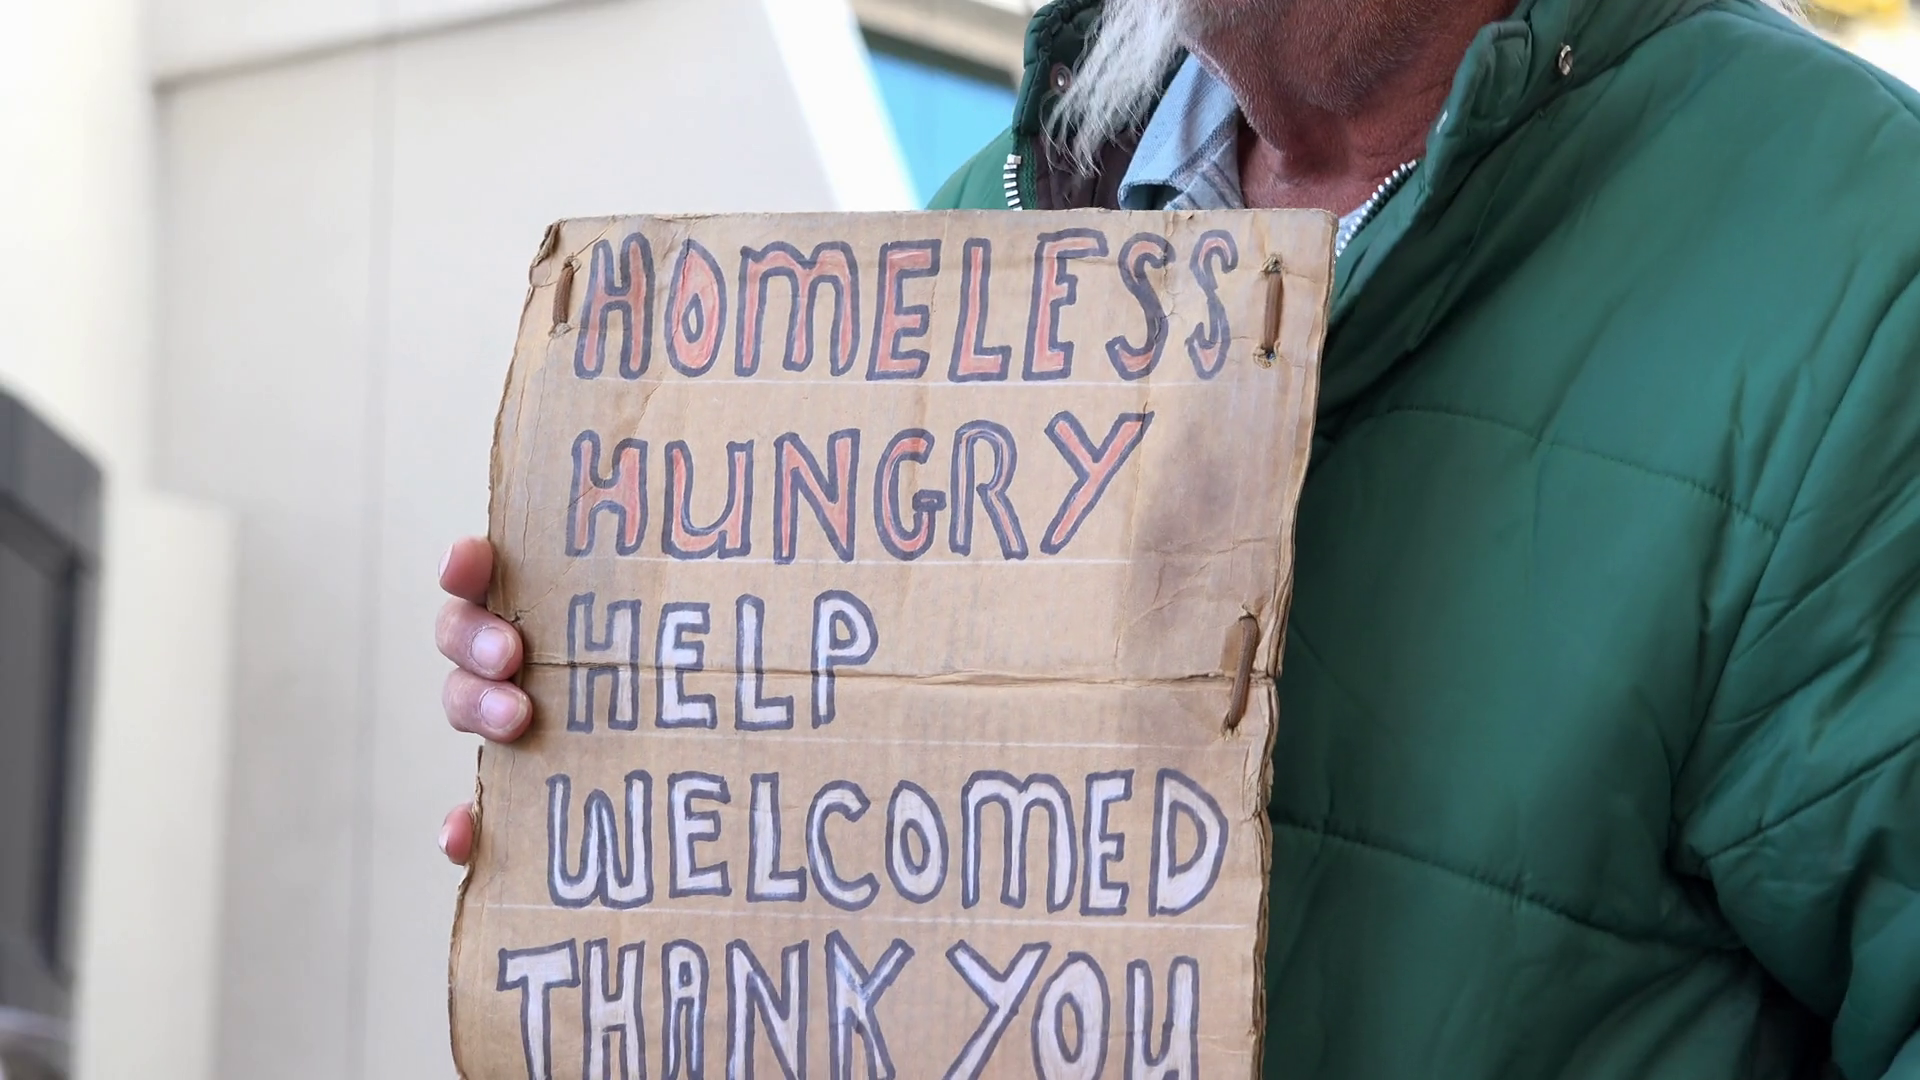 HOMELESS
HUNGRY
HELP
WELCOMED
THANK YOU